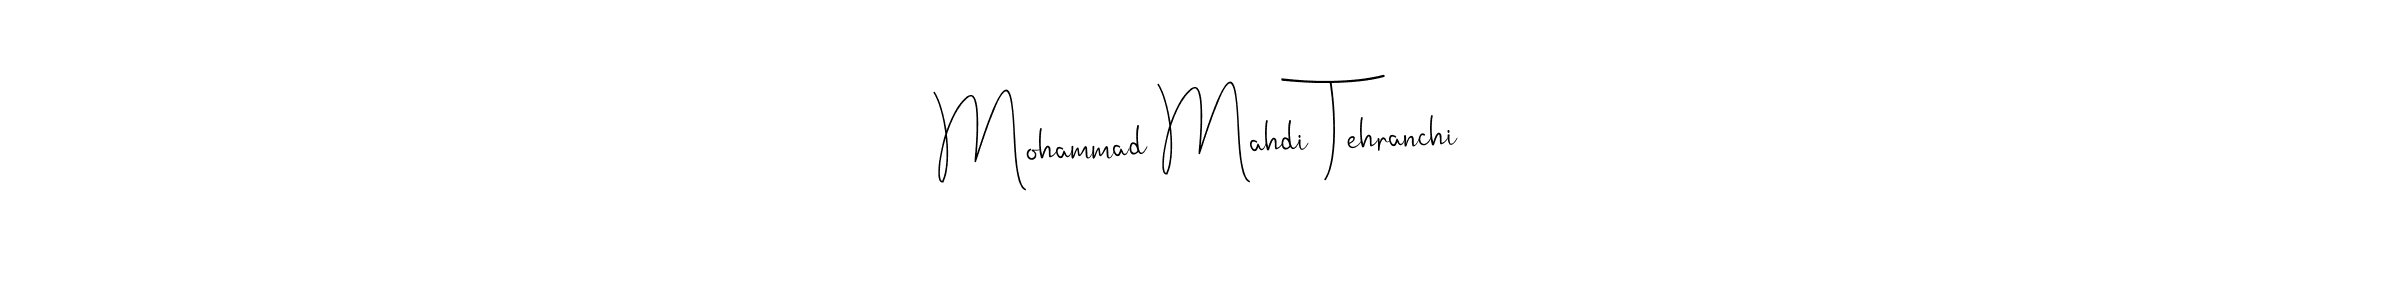 Mohammad Mahdi Tehranchi